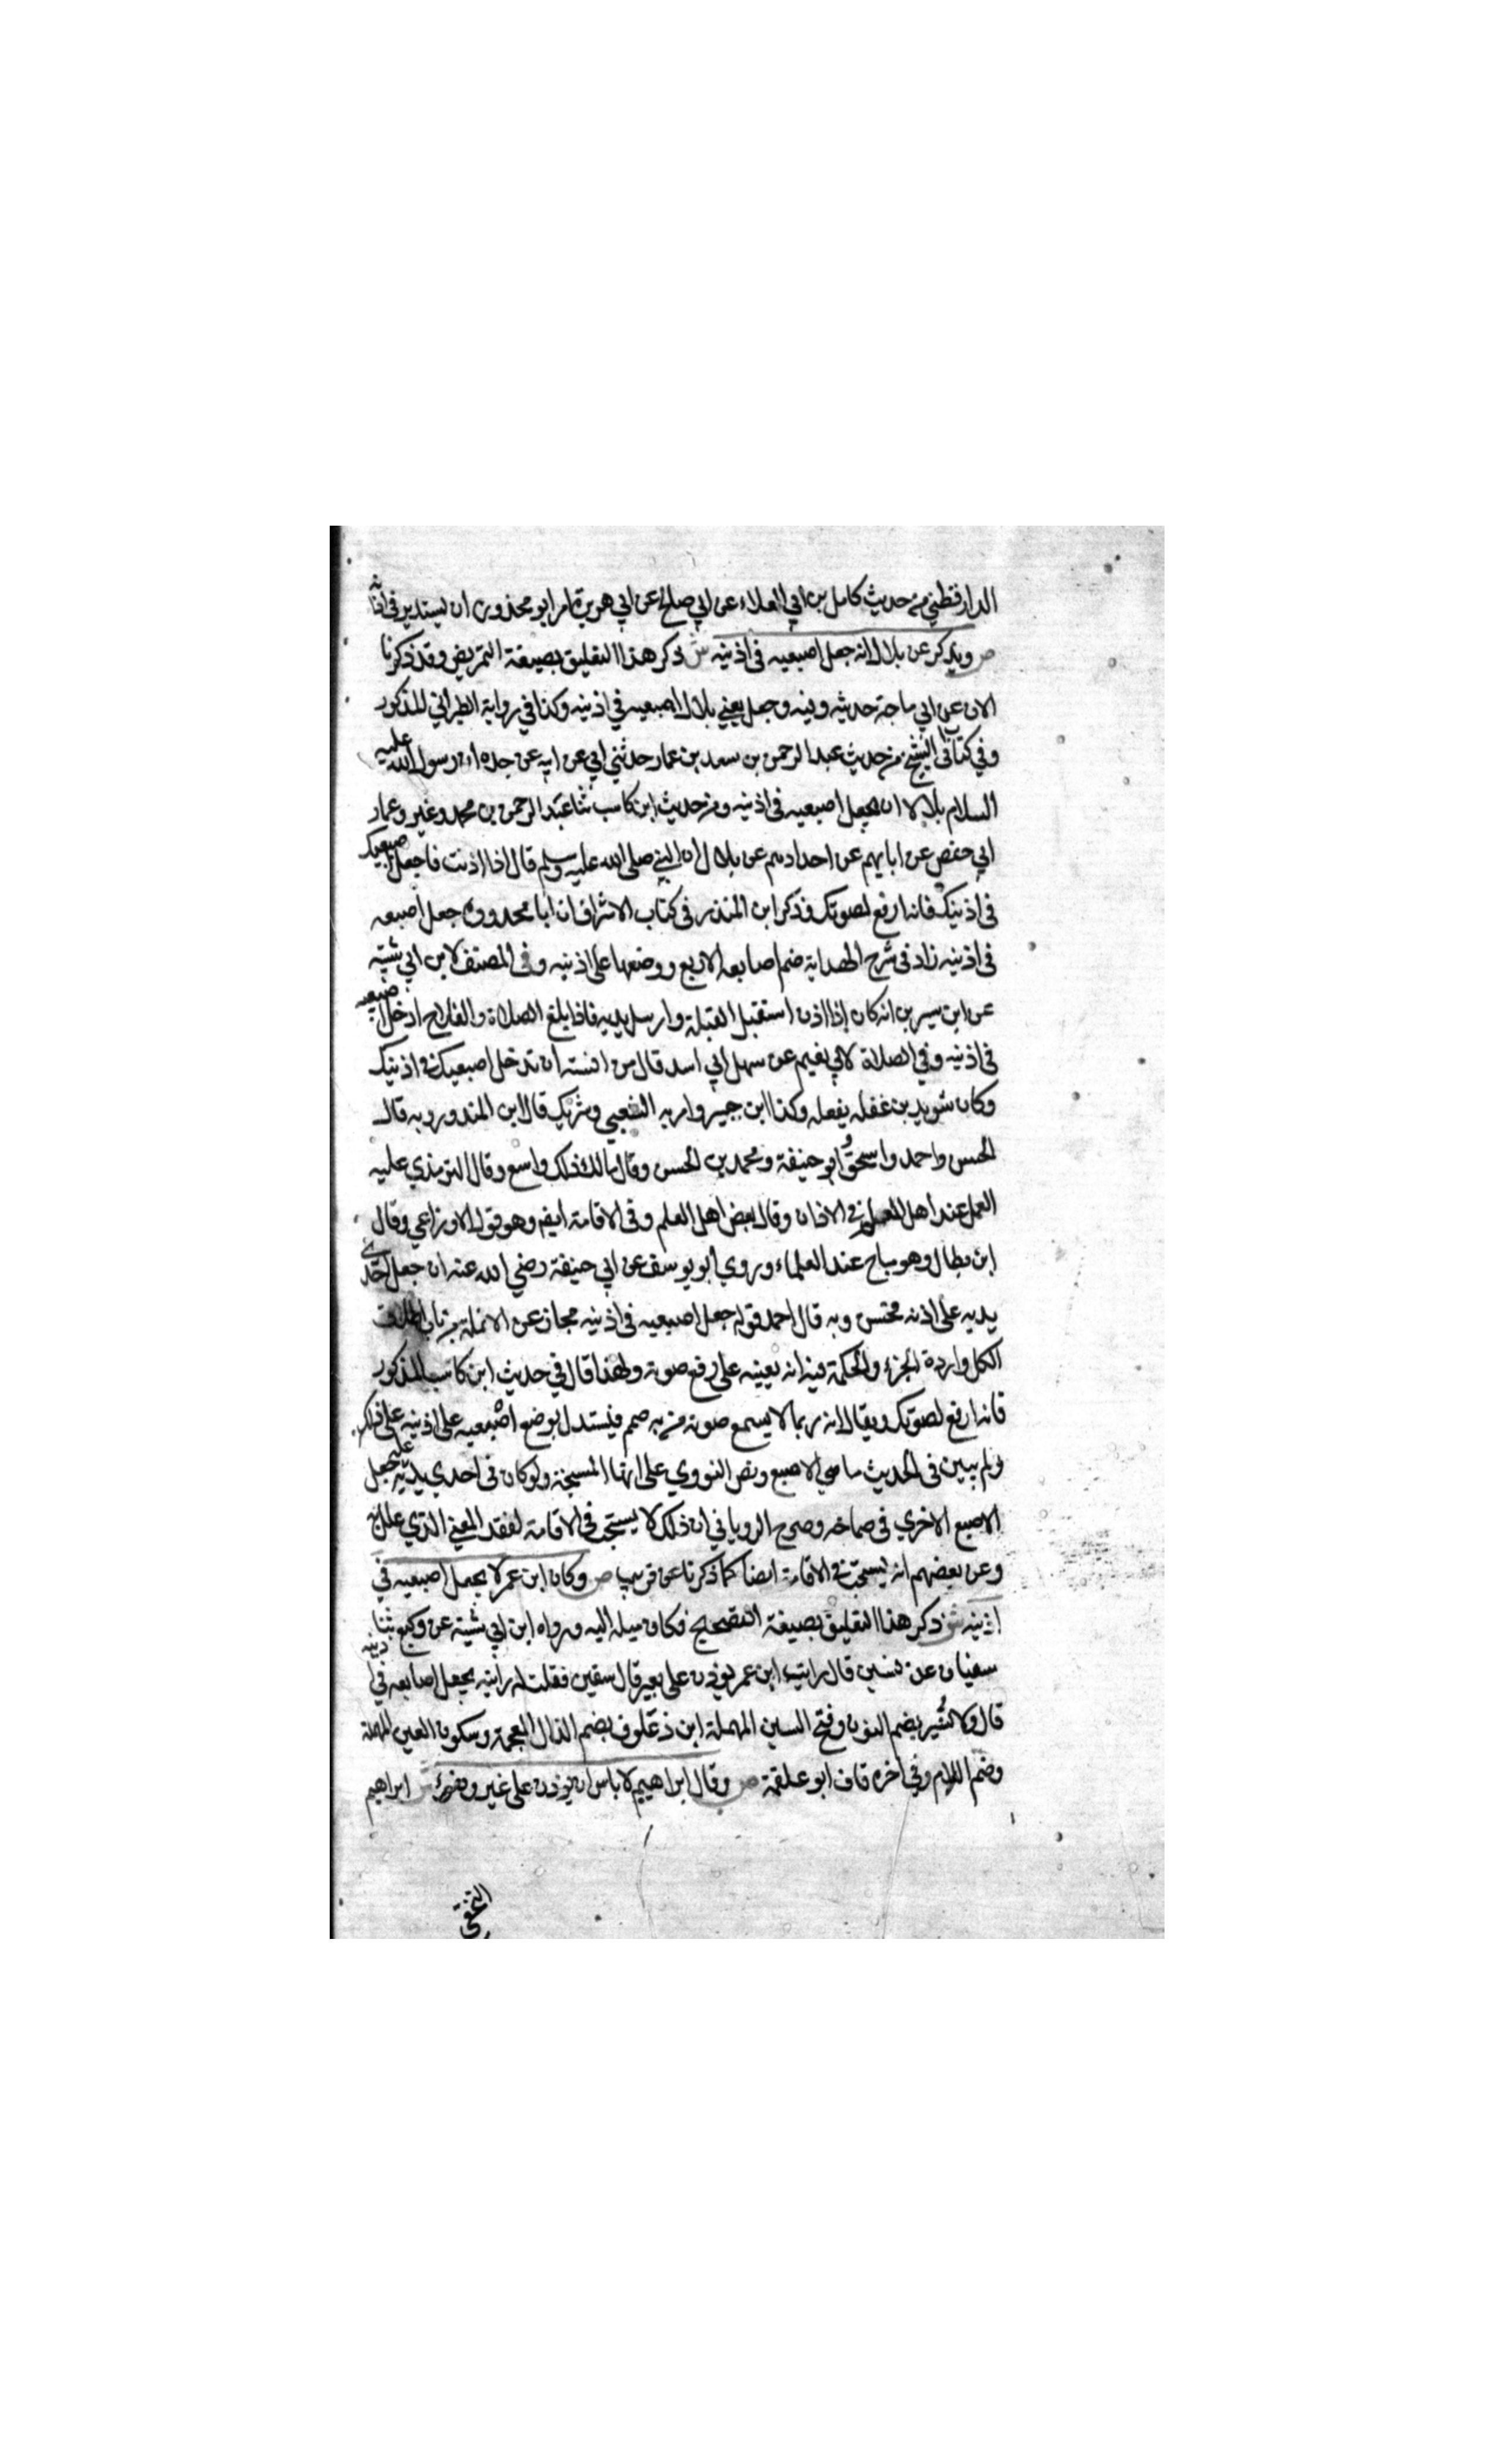 الدارقطني من حديث كامل بن ابي العلاء عن ابي صالح عن ابي هريرة امر ابو محذورة ان يستدير في اذانه
ص ويذكر عن بلال انه جعل اصبعيه في اذنيه ش ذكر هذا التعليق بصيغة التمريض وقد ذكرنا
الان عن ابي ماجة حديثه وفيه وجعل يعني بلال اصبعيه في اذنيه وكذا في رواية الطبراني المذكور
وفي كتاب ابي الشيخ من حديث عبد الرحمن بن سعد بن عمار حدثني ابي عن ابيه عن جده ان رسول الله عليه
السلام بلالا ان يجعل اصبعيه في اذنيه ومن حديث ابن كاسب ثنا عبد الرحمن بن محمد وغيره وعمار
ابي حفص عن ابايهم عن اجدادهم عن بلال ان النبي صلى الله عليه وسلم قال اذا اذنت فاجعل اصبعيك
في اذنيك فانه ارفع لصوتك وذكر ابن المنذر في كتاب الاشراف ان ابا محذورة جعل اصبعه
في اذنيه زاد في شرح الهداية ضم اصابعه الاربع ووضعها على اذنيه وفي المصنف لابن ابي شيبة
عن ابن سيرين انه كان إذا اذن استقبل القبلة وارسل يديه فاذا بلغ الصلاة والفلاح ادخل اصبعيه
في اذنيه وفي الصلاة لابي نعيم عن سهل ابي اسد قال من السنة ان تدخل اصبعيك في اذنيك
وكان سويد بن غفله يفعله وكذا ابن جبير وامر به الشعبي وشريك قال ابن المنذر وبه قال
الحسن واحمد واسحق وابو حنيفة ومحمد بن الحسن وقال مالك ذلك واسع وقال الترمذي عليه
العمل عند اهل العلم في الاذان وقال بعض اهل العلم وفي الاقامة ايضا وهو قول الاوزاعي وقال
ابن بطال وهو مباح عند العلماء وروي ابو يوسف عن ابي حنيفة رضي الله عنه ان جعل احدي
يديه على اذنه فحسن وبه قال احمد قوله جعل اصبعيه في اذنيه مجاز عن الانملة من باب اطلاق
الكل وارادة الجزء والحكمة فيه انه يعينه على رفع صوته ولهذا قال في حديث ابن كاسب المذكور
فانه ارفع لصوتك ويقال انه ربما لا يسمع صوته من به صمم فيستدل بوضع اصبعيه على اذنيه على ذلك
ولم يبين في الحديث ما هي الاصبع ونص النووي على انها المسبحة ولو كان في احدي يديه علة جعل
الاصبع الاخري في صماخه وصرح الروياني ان ذلك لا يستحب في الاقامة لفقد المعني الذي علل به
وعن بعضهم انه يستحب في الاقامة ايضا كما ذكرنا عن قريب ص وكان ابن عمر لا يجعل اصبعيه في
اذنيه ش ذكر هذا التعليق بصيغة التصحيح فكان ميله اليه ورواه ابن ابي شيبة عن وكيع ثنا
سفيان عن نسير قال رايت ابن عمر يوذن على بعير قال سفين فقلت له رايته يجعل اصابعه في اذنيه
قال لا ونسير بضم النون وفتح السين المهملة ابن ذعلوق بضم الذال المعجمة وسكون العين المهملة
وضم اللام وفي اخره قاف ابو علقمة ص وقال ابراهيم لا باس ان يوذن على غير وضوء ش ابراهيم
النخعي